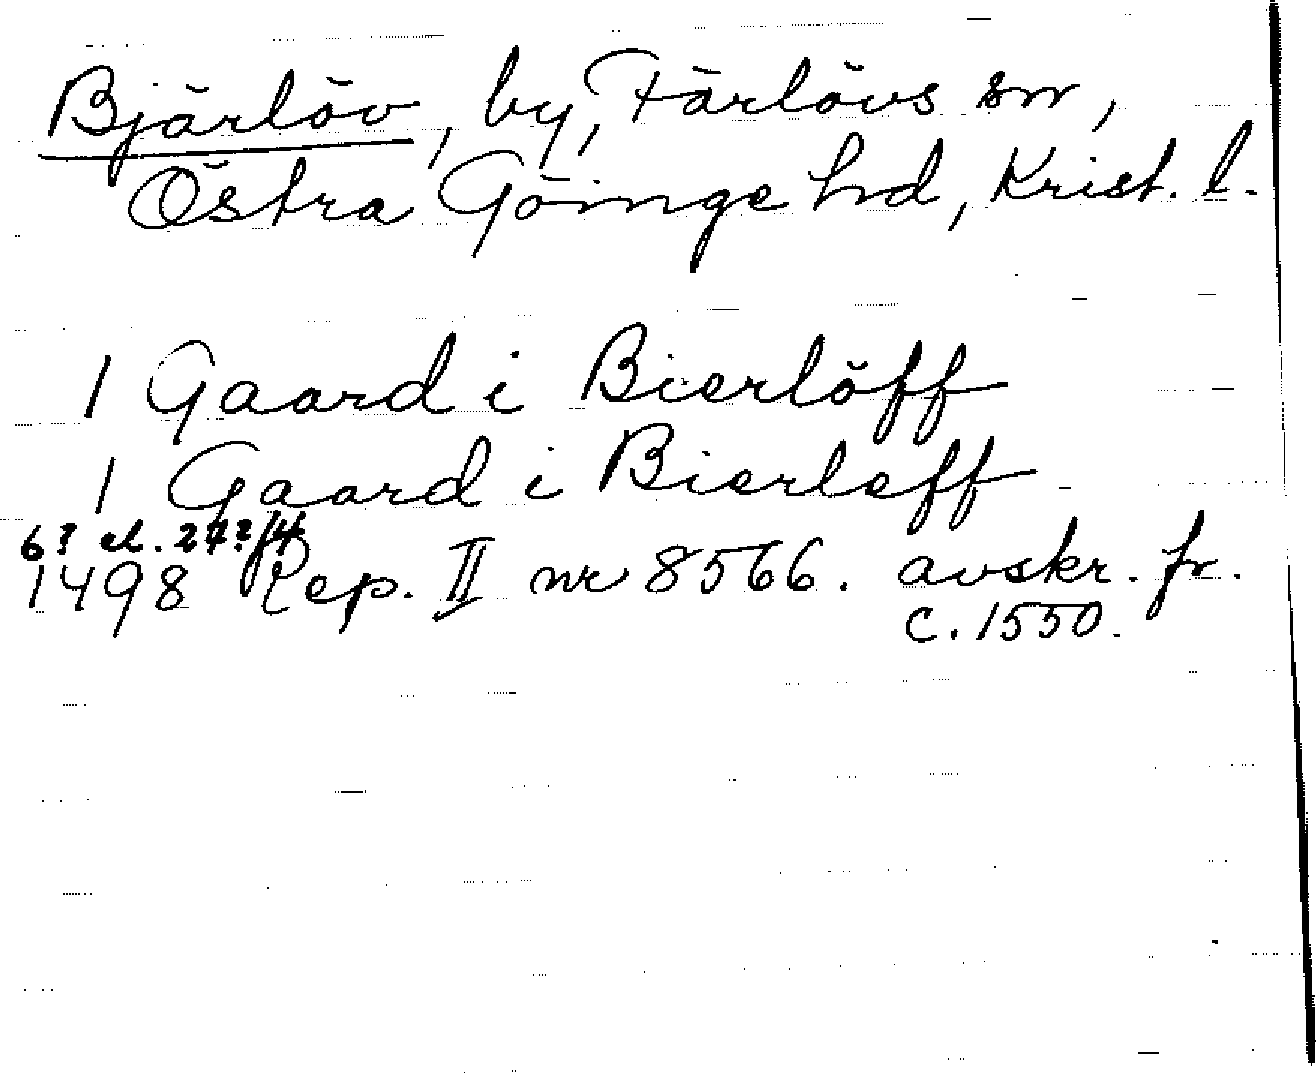 Bjärlöv, by, Färlövs sn,
Östra Göinge hd, Krist. l.
1 Gaard i Bierlöff
1 Gaard i Bierleff
6? el. 27?/4
1498 Rep. II nr 8566. avskr. fr.
c. 1550.